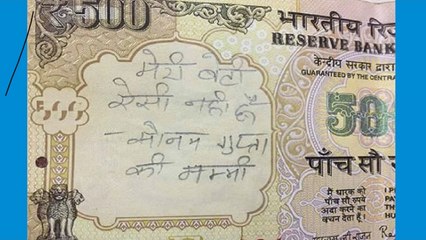 ₹500
भारतीय रिज़
RESERVE BANK
केन्द्रीय सरकार द्वारा
GUARANTEED BY THE CENTRA
मेरी बेटी
ऐसी नहीं है
- सोनम गुप्ता
की मम्मी
50
पाँच सौ
मैं धारक को
पाँच सौ रुपये
अदा करने का
वचन देता हूँ।